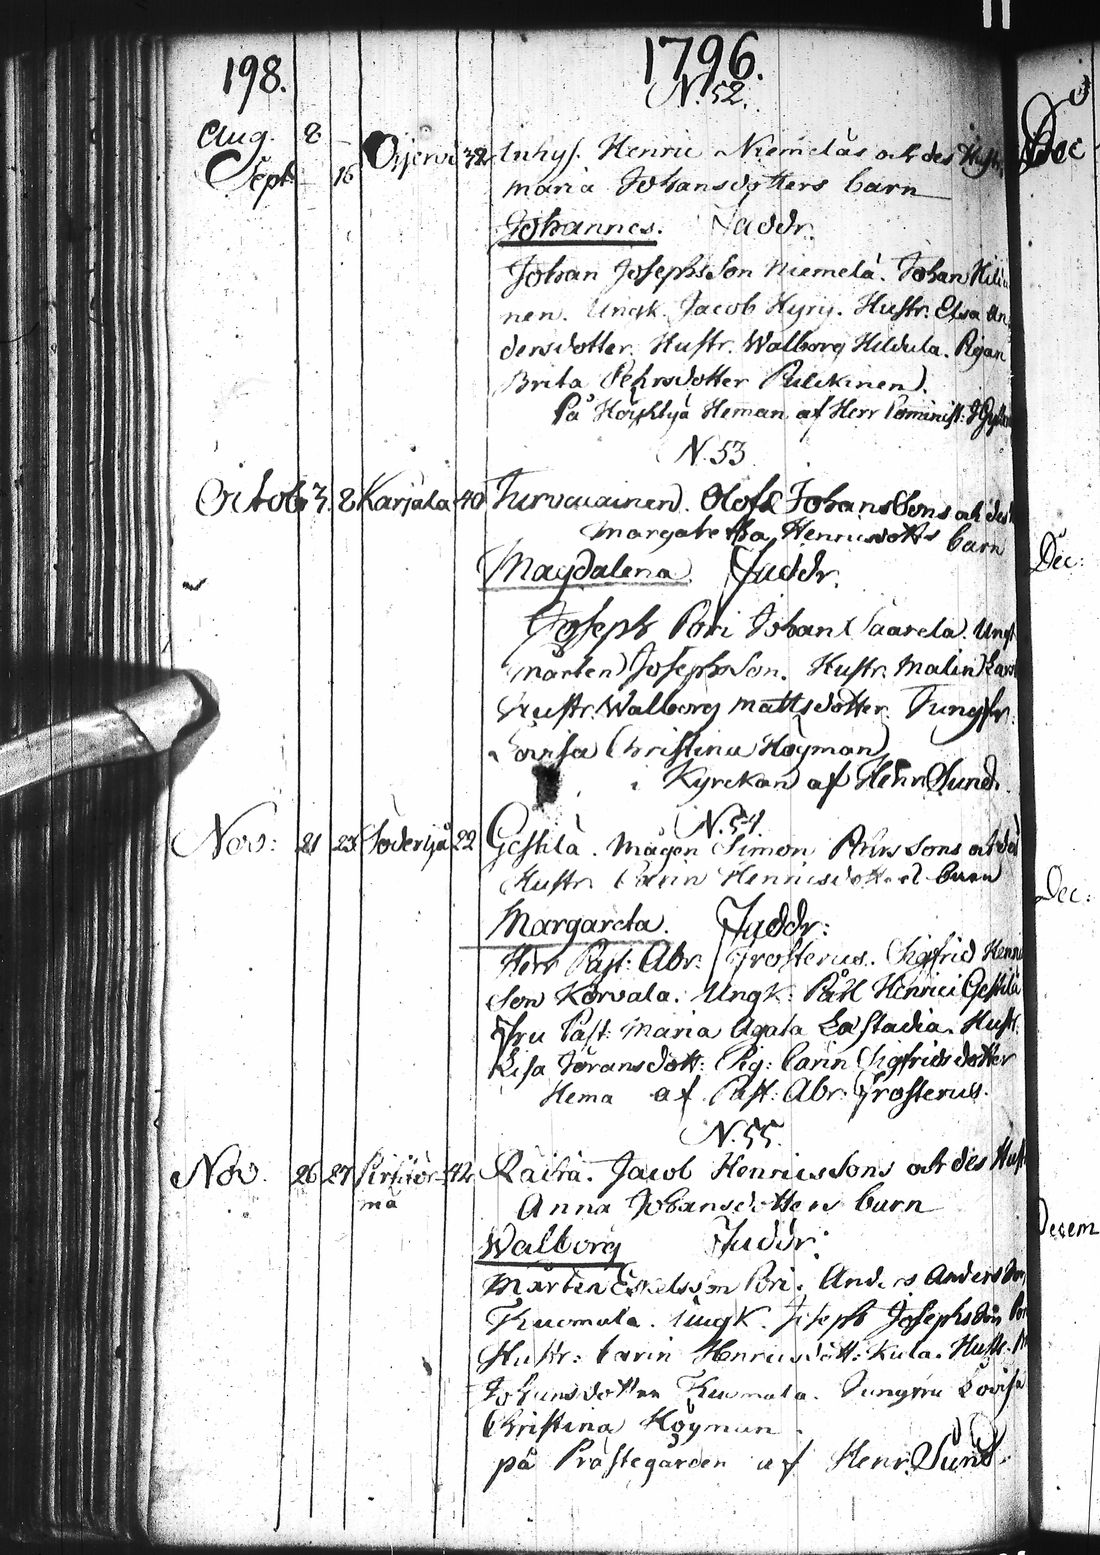 198. 1796.
N. 52.
Aug. 8
Sept. 16 Oijervi 38 Inhys. Henric Niemeläs och des Hustr
Maria Johansdotters barn
Johannes. Faddr.
Johan Josephsson Niemelä. Johan Hilia
nen. Ungk. Jacob Hyry. Hustr. Elsa An
dersdotter. Hustr. Walborg Hildula. Pigan
Brita Pehrsdotter Pulckinen.
På Heman af Herr
N. 53
Octob. 3. 8 Karjala 40 Olofs Johanssons och des
Margaretha Henricsdotts barn
Magdalena. Faddr.
Joseph Pori Johan Saarela. Ungk
Mårten Josephsson. Hustr. Malin
Hustr. Walborg Mattsdotter. Jungfr.
Lovisa Christina Höyman
i Kyrckan af Henr. Sund.
N. 54.
Nov: 21 23 22 Gestilä. Mågen Simon Pährssons och
Hustr. Carin Henricsdotters barn
Margareta. Faddr:
Herr Past: Abr: Frosterus. Sigfrid Henric
son Korvala. Ungk: Påhl Henrici Gestilä
Fru Past: Maria Agata Læstadia. Hustr:
Lisa Jöransdott: Pig: Carin Sigfridsdotter
Hema af Past: Abr: Frosterus.
N. 55.
Nov. 26 27 42 Räihä. Jacob Henricssons och des Hust
mä Anna Johansdotters barn
Walborg Faddr:
Mårten Eskelsson Pori. Anders Andersson
Kuomala. Ungk. Joseph Josephsson
Hustr: Carin Henricsdott: Kula. Hustr.
Johansdotter Kuomala. Jungfru Lovisa
Christina Höyman.
på Prästegården af Henr. Sund.
Dec
Dec:
Dec:
Decem